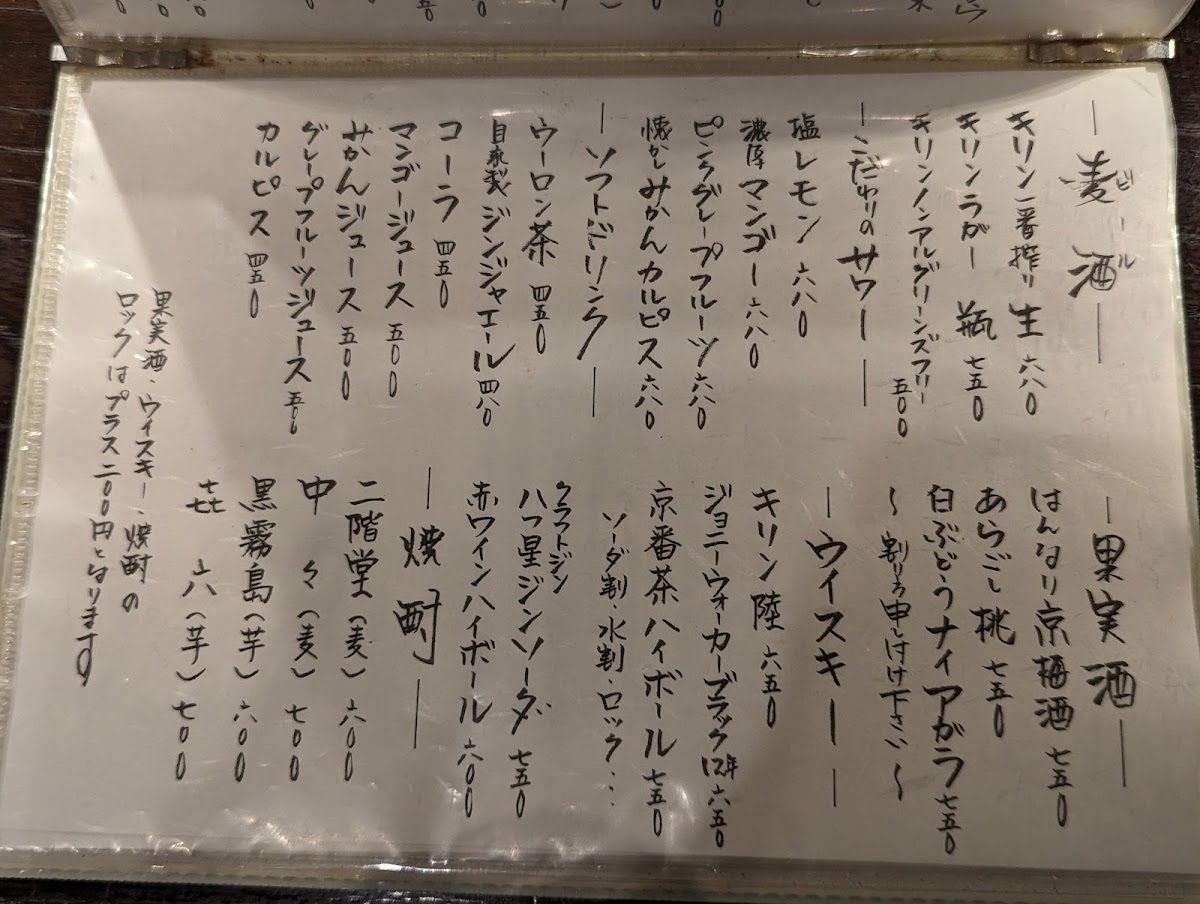 ―麦酒―
ビール
キリン一番搾り 生 六八〇
キリンラガー 瓶 七五〇
キリンノンアルグリーンズフリー 五〇〇
―こだわりのサワー―
塩レモン 六八〇
濃厚マンゴー 六八〇
ピンクグレープフルーツ 六八〇
懐かしみかんカルピス 六八〇
―ソフトドリンク―
ウーロン茶 四五〇
自家製ジンジャエール 四八〇
コーラ 四五〇
マンゴージュース 五〇〇
みかんジュース 五〇〇
グレープフルーツジュース 五〇〇
カルピス 四五〇
―果実酒―
はんなり京梅酒 七五〇
あらごし桃 七五〇
白ぶどうナイアガラ 七五〇
～割り方申し付け下さい～
―ウイスキー―
キリン陸 六五〇
ジョニーウォーカーブラック12年 六五〇
京番茶ハイボール 七五〇
ソーダ割・水割・ロック・・・
クラフトジン
八つ星ジンソーダ 七五〇
赤ワインハイボール 六〇〇
―焼酎―
二階堂(麦) 六〇〇
中々(麦) 七〇〇
黒霧島(芋) 六〇〇
㐂六(芋) 七〇〇
果実酒・ウイスキー・焼酎の
ロックはプラス二〇〇円となります